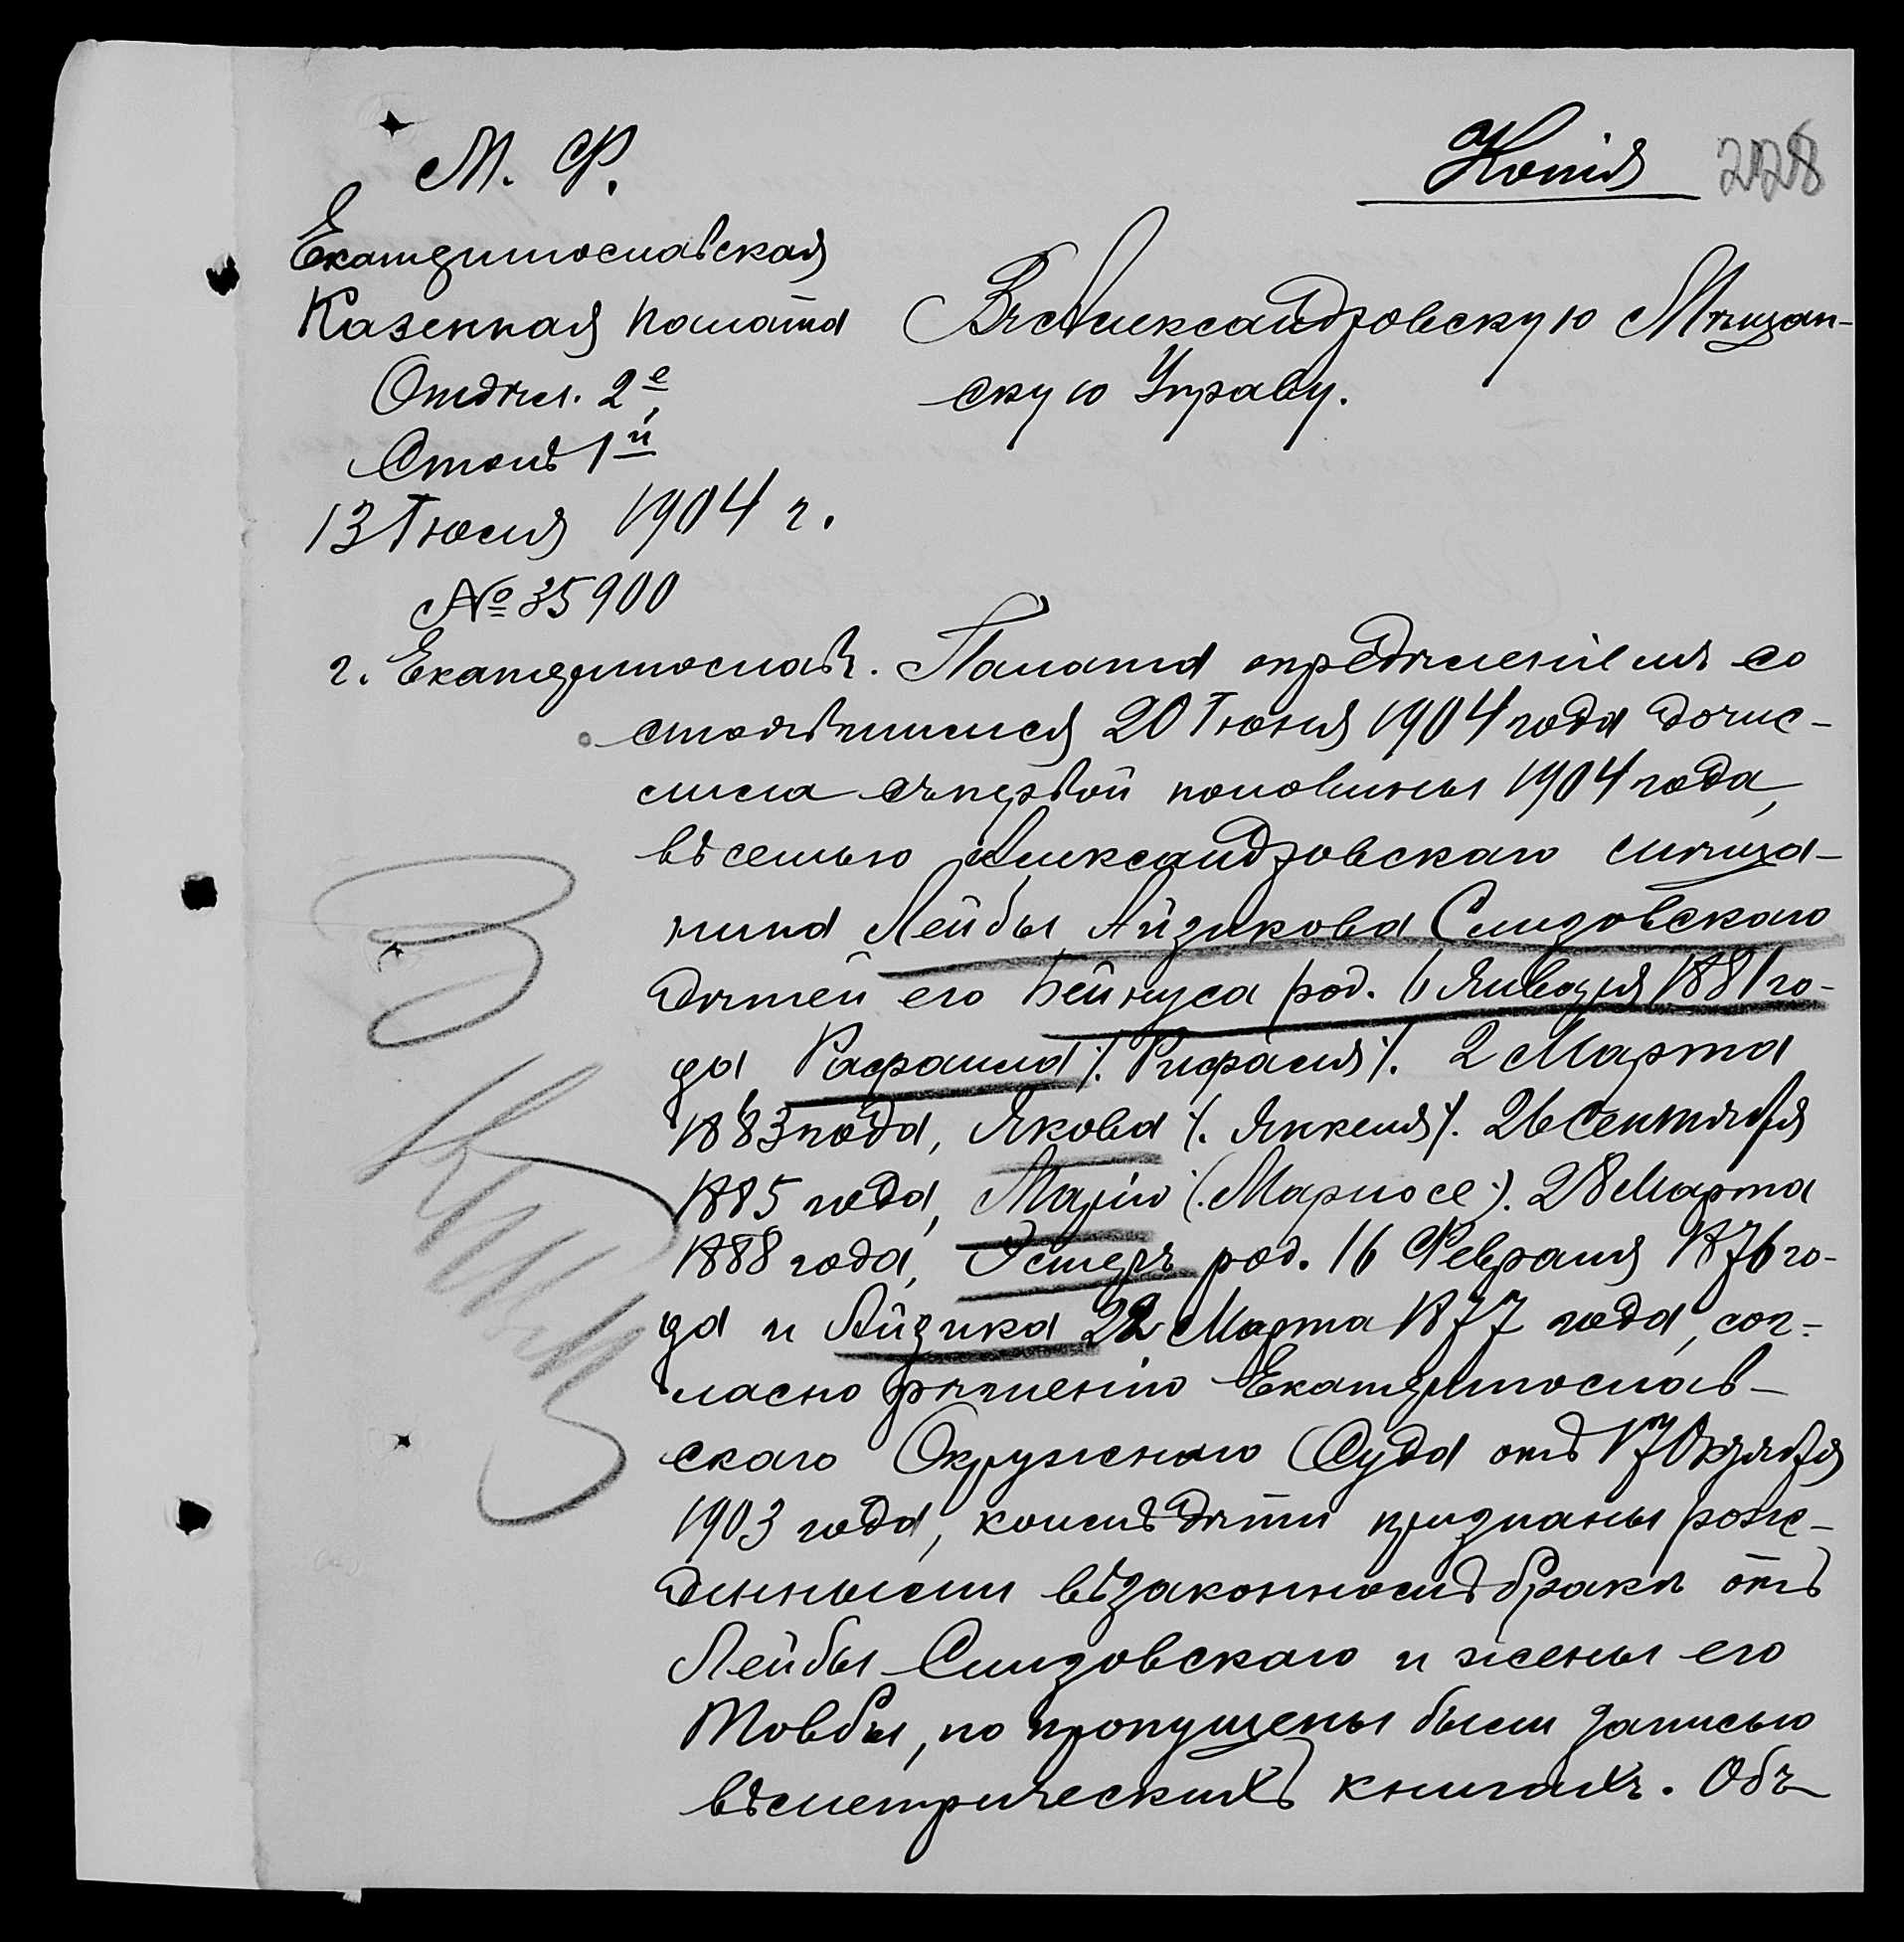 Копія 228
М. Ф.
Екатеринославская
Казенная Палата
Отдѣл. 2е,
Столъ 1й
13 Іюля 1904 г.
№ 35900
г. Екатеринославъ.
Въ Александровскую Мѣщан-
скую Управу.
Палата опредѣленіемъ со
стоявшимся 20 Іюня 1904 года дочис-
лила съ первой половины 1904 года,
въ семью Александровскаго мѣща-
нина Лейбы Айзикова Слизовскаго
дѣтей его Бейнуса род. 6 Января 1881 го-
да, Рафаила /. Рифаеля /. 2 Марта
1883 года, Якова /. Янкеля /. 26 Сентября
1885 года, Марію (. Марьосе .). 28 Марта
1888 года, Эстеръ род. 16 Февраля 1876 го-
да и Айзика 22 Марта 1877 года, сог-
ласно рѣшенію Екатеринослав-
скаго Окружнаго Суда отъ 17 Октября
1903 года, коимъ дѣти признаны рож-
денными въ законномъ бракѣ отъ
Лейбы Слизовскаго и жены его
Товбы, но пропущены были записью
въ метрическихъ книгахъ. Объ